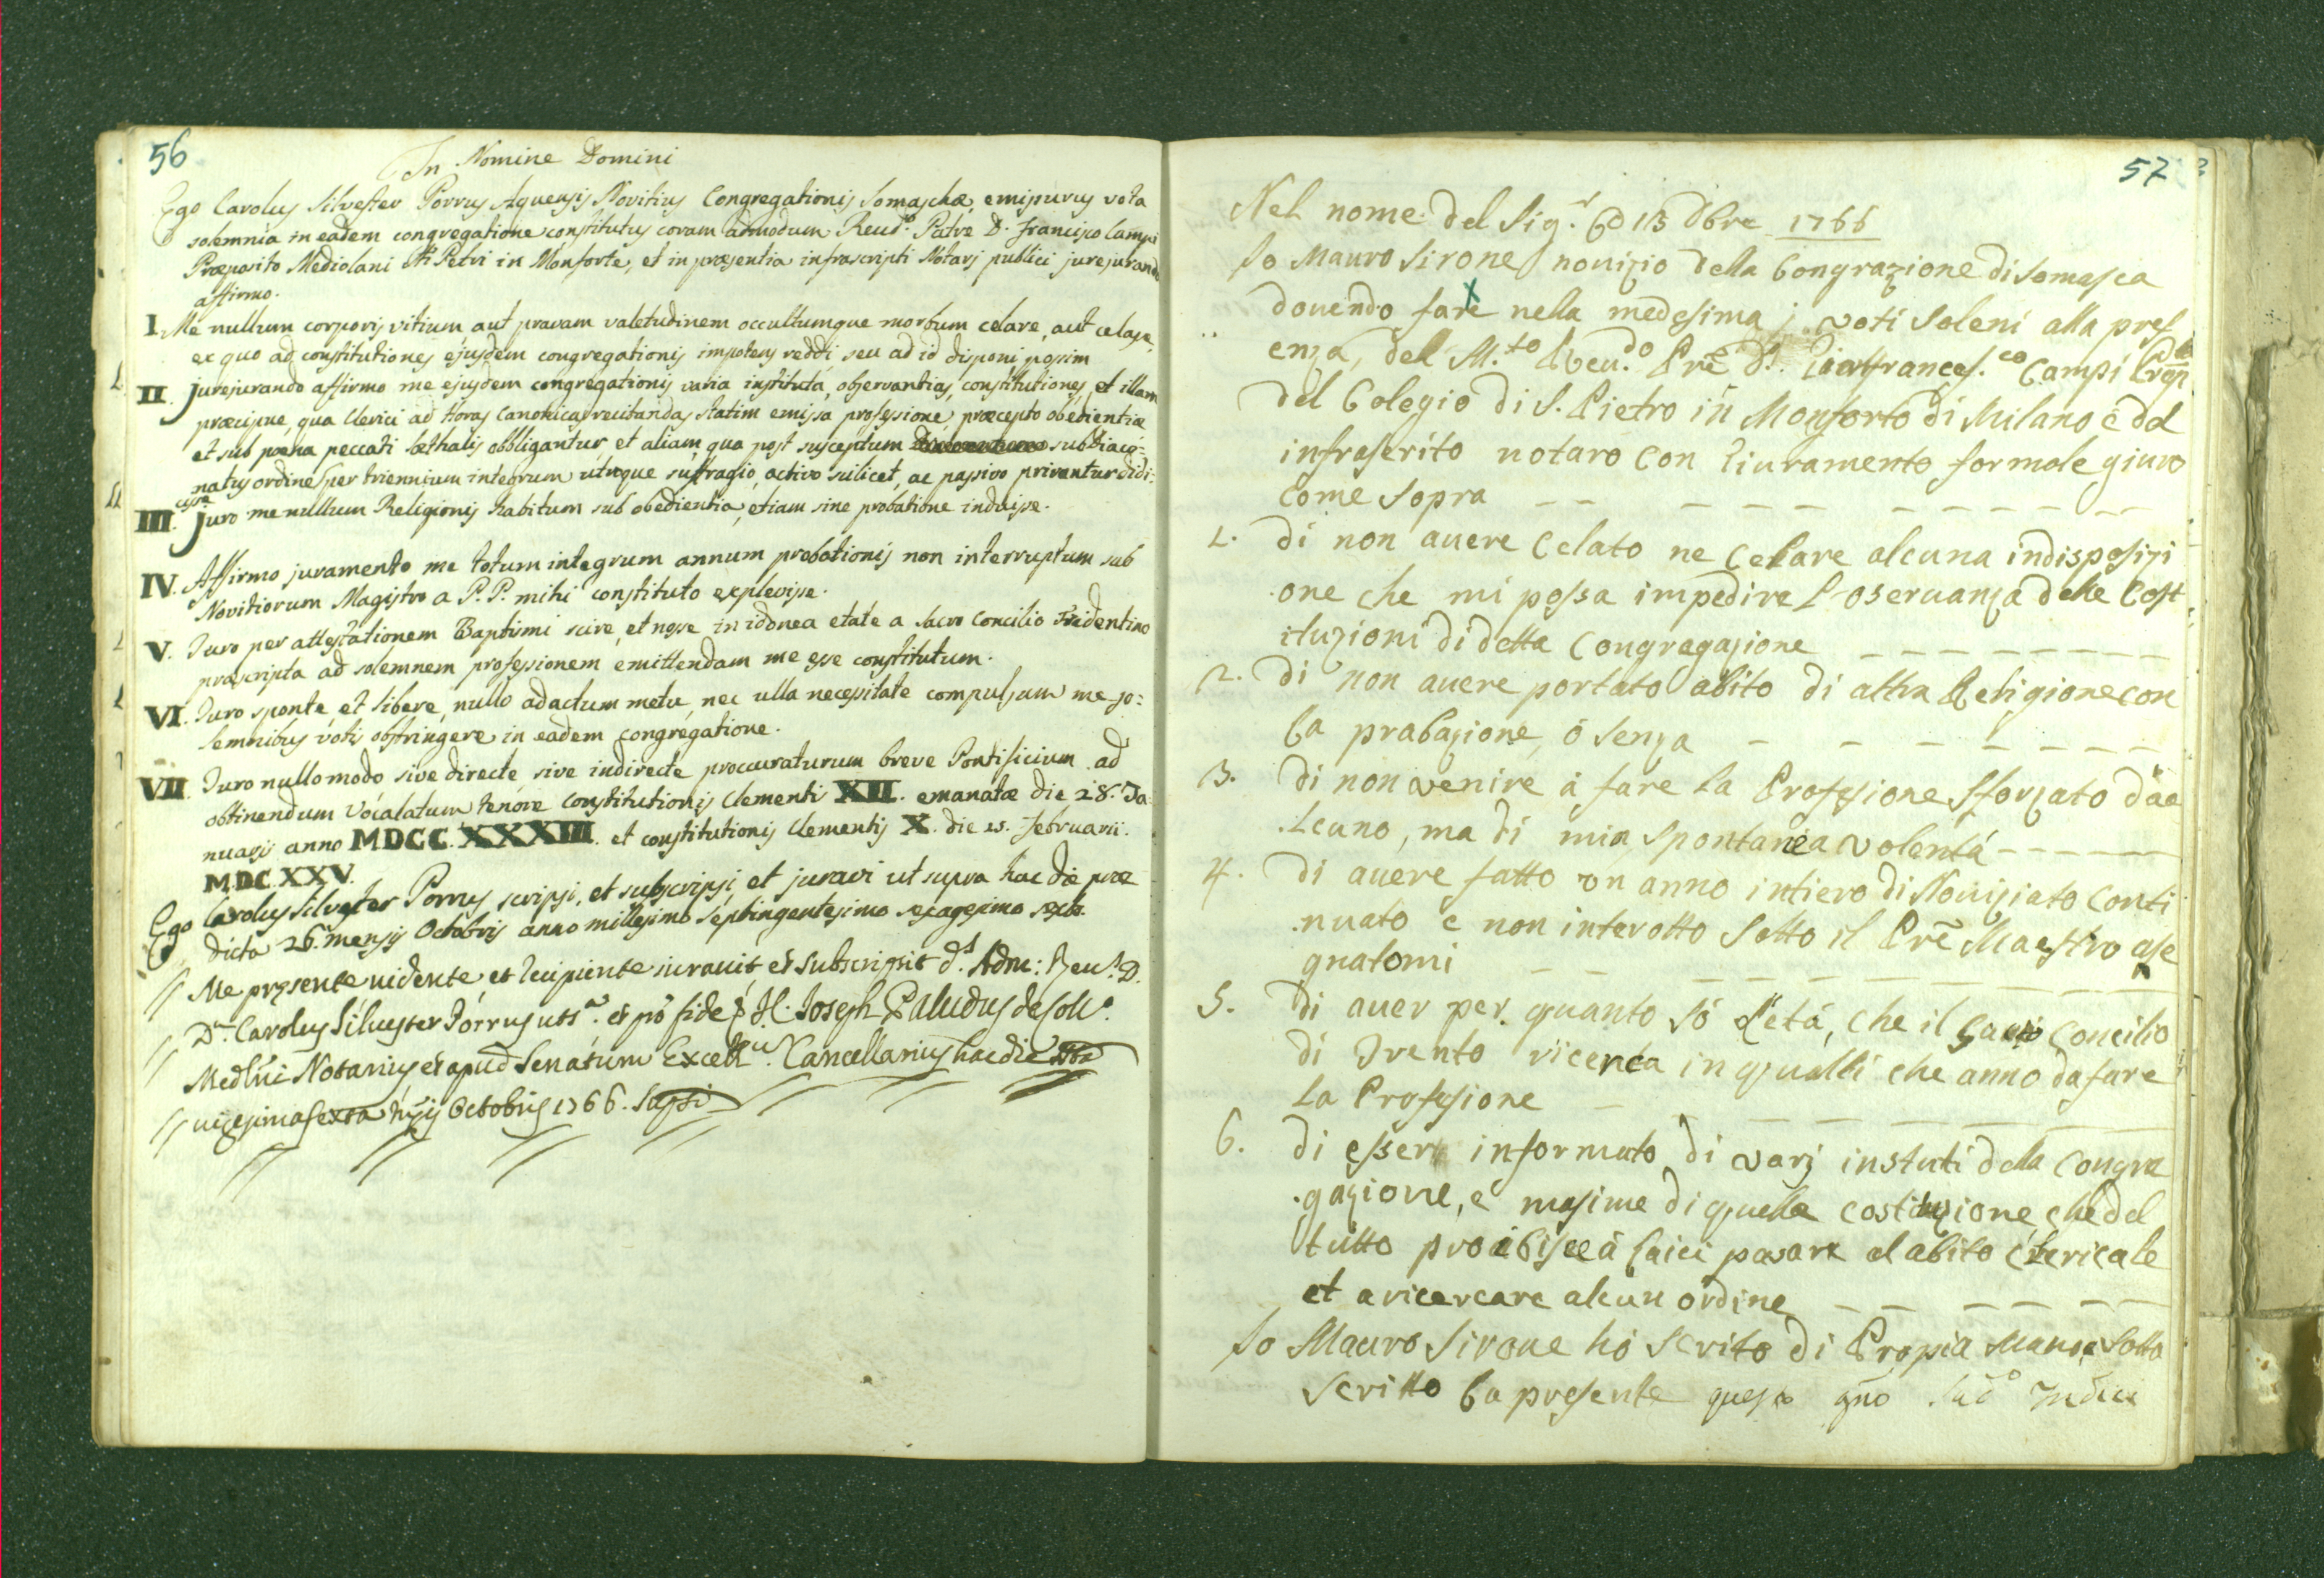 56
In Nomine Domini
Ego Carolus Silvester Porrus Aquensis Novitius Congregationis Somaschæ, emissurus vota
solemnia in eadem congregatione constitutus coram admodum Reud.º Patre D. Francisco Campi
Præposito Mediolani Sti Petri in Monforte, et in præsentia infrascripti Notarj publici jurejurando
affirmo.
I. Me nullum corporis vitium, aut pravam valetudinem occultumque morbum celare, aut celasse,
ex quo ad constitutiones ejusdem congregationis impotens reddi, seu ad id disponi possim
II. Jurejurando affirmo me ejusdem congregationis varia instituta, observantias, constitutiones, et illam
præcipue, qua Clerici ad Horas Canonicas recitandas statim emissa professione, præcepto obedientiæ
et sub pœna peccati læthalis obbligantur, et aliam, qua post susceptum subdiaco-
natus ordine per triennium integrum utroque suffragio, activo silicet, ac passivo priventur didi-
cisse
III. Juro me nullum Religionis habitum sub obedientia, etiam sine probatione induisse.
IV. Affirmo juramento me totum integrum annum probationis non interruptum sub
Novitiorum Magistro a P. P. mihi constituto explevisse.
V. Juro per attestationem Baptismi scire, et nosse in idonea etate a sacro Concilio Tridentino
præscripta ad solemnem professionem emittendam me esse constitutum.
VI. Juro sponte, et libere, nullo adactum metu, nec ulla necessitate compulsum me so=
lemnibus votis obstringere in eadem congregatione.
VII. Juro nullo modo sive directe sive indirecte procuraturum breve Pontificium ad
obtinendum Vocalatum tenore Constitutionis Clementi XII. emanatæ die 28. Ja-
nuarii anno MDCC.XXXIII. et constitutionis Clementis X. die 15. Februarii.
MDC.XXV.
Ego Carolus Silvester Porrus scripsi, et subscripsi, et juravi ut supra hac die præ
dicta 26. mensis Octobris anno millesimo septingentesimo sexagesimo sexto.
Me presente vidente et recipiente iuravit et subscripsit d.s Adm: Reu.s D.
D.n Carolus Siluester Porrus uts.a et pō fide J. Joseph Paludus de Coll.º
Medlni Notarius et apud Senatum Excell. Cancellarius hac die
uigesima sexta Octobris 1766.
57
Nel nome del Sig.r 1766
Io Mauro Sirone nouizio della Congrazione di Somasca
douendo fare nella medesima j voti soleni alla pres
enza, del M.to Reu.do Prē D. Gianfrances.co Campi Prep
del Colegio di S. Pietro in Monforto di Milano é del
infrascrito notaro con Giuramento formale giuro
come sopra
1. di non auere Celato ne Celare alcuna indisposizi
one che mi possa impedire l'oseruanza delle Cost
ituzioni di detta Congregazione
2. di non auere portato abito di altra Religione con
la prabazione, ó senza
3. di non venire á fare la Professione sforzato dáa
lcuno, ma di mia spontanea volentá
4. di auere fatto vn anno intiero di Nouiziato Conti
nuato e non interotto sotto il Prē Maestro ase
gnatomi
5. di auer per quanto só l'etá, che il sacro Concilio
di Trento ricerca in qualli che anno da fare
la Professione
6. di essere informato di varj instuti della Congre
gazione, e masime di quella costituzione, che del
tutto proibisce á laici pasare al abito Clericale
et a ricercare alcun ordine
Io Mauro Sirone hó scrito di Propia mano e sotto
scritto la presente questo